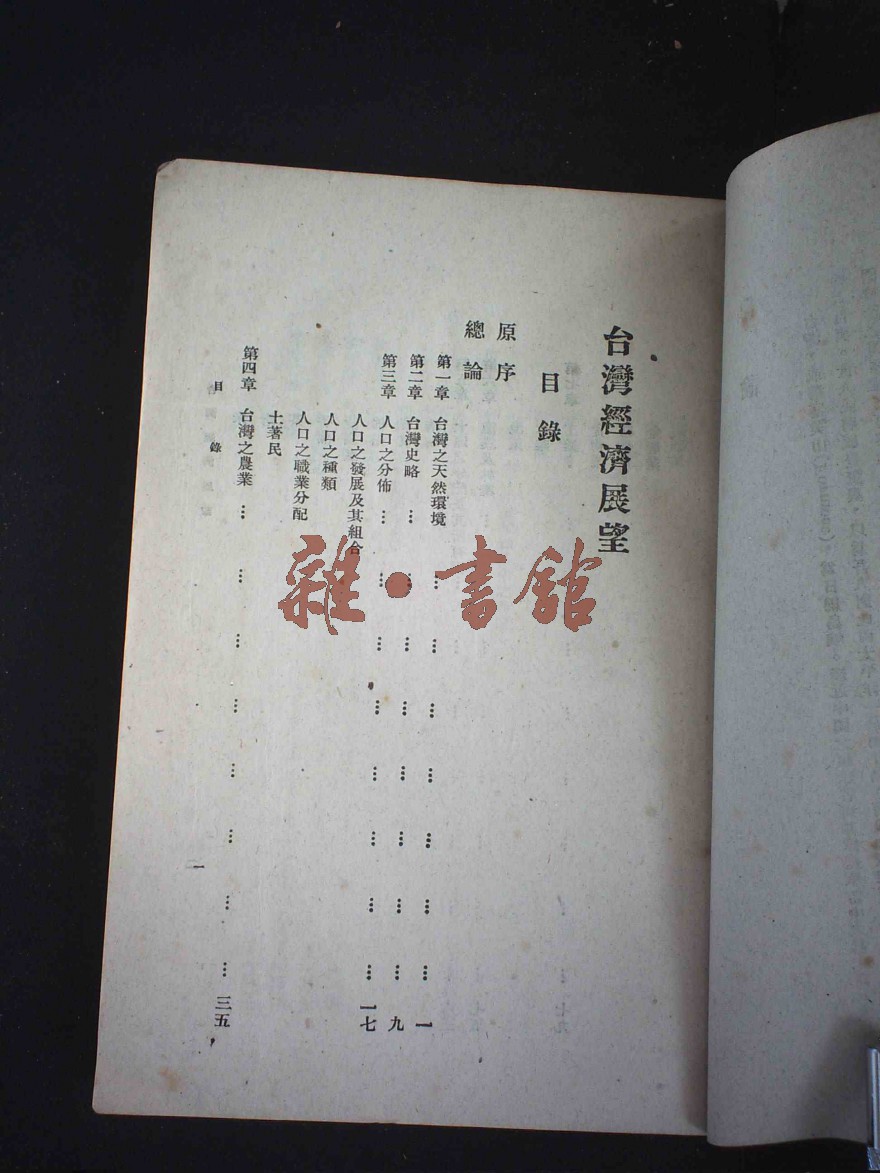 台灣經濟展望
目錄
原序
總論
第一章 台灣之天然環境 ……………………… 一
第二章 台灣史略 ……………………… 九
第三章 人口之分佈 ……………………… 一七
人口之發展及其組合
人口之種類
人口之職業分配
土著民
第四章 台灣之農業 ……………………… 三五
目錄
一
雜·書館